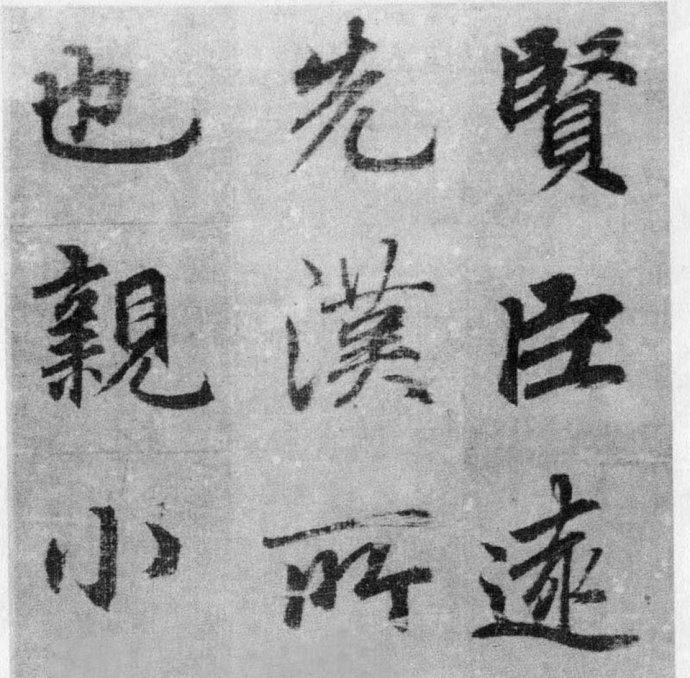 賢臣遠
先漢所
也親小